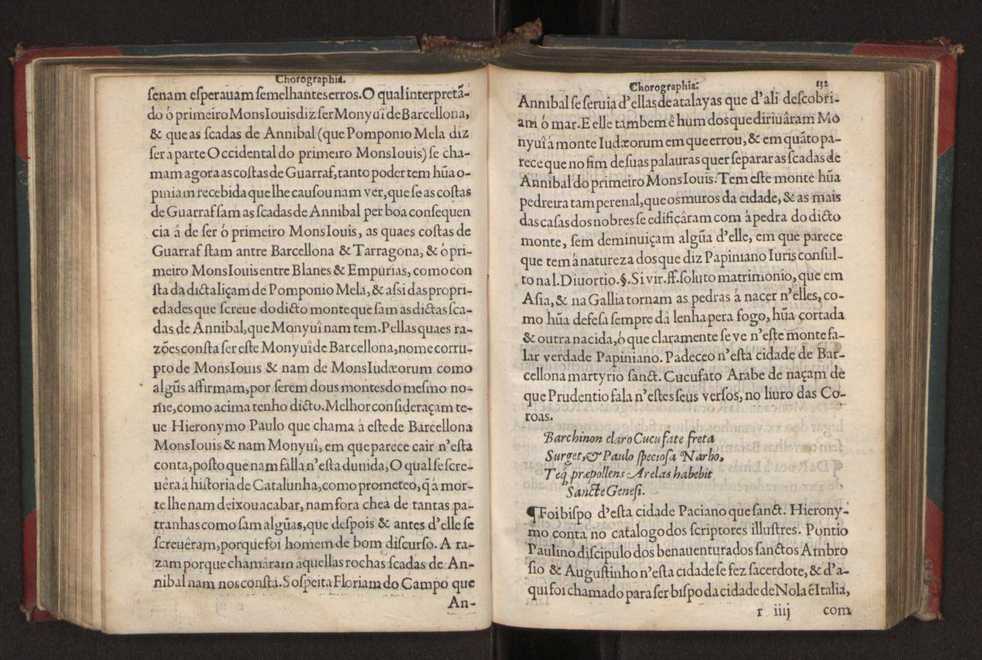 Chorographia.
senam esperauam semelhantes erros. O qual interpretã-
do ó primeiro Mons Iouis diz ser Monyuî de Barcellona,
& que as scadas de Annibal (que Pomponio Mela diz
ser a parte Occidental do primeiro Mons Iouis) se cha-
mam agora as costas de Guarraf, tanto poder tem hũa o-
piniam recebida que lhe causou nam ver, que se as costas
de Guarraf sam as scadas de Annibal per boa consequen
cia á de ser ó primeiro Mons Iouis, as quaes costas de
Guarraf stam antre Barcellona & Tarragona, & ó pri-
meiro Mons Iouis entre Blanes & Empurias, como con
sta da dicta liçam de Pomponio Mela, & assi das propri-
edades que screue do dicto monte que sam as dictas sca-
das de Annibal, que Monyuî nam tem. Pellas quaes ra-
zões consta ser este Monyuî de Barcellona, nome corru-
pto de Mons Iouis & nam de Mons Iudæorum como
algũs affirmam, por serem dous montes do mesmo no-
me, como acima tenho dicto. Melhor consideraçam te-
ue Hieronymo Paulo que chama á este de Barcellona
Mons Iouis & nam Monyuî, em que parece cair n'esta
conta, posto que nam falla n'esta duuida, O qual se scre-
uêra á historia de Catalunha, como prometeo, q̃ á mor-
te lhe nam deixou acabar, nam fora chea de tantas pa-
tranhas como sam algũas, que despois & antes d'elle se
screuêram, porque foi homem de bom discurso. A ra-
zam porque chamáram áquellas rochas scadas de An-
nibal nam nos consta. Sospeita Floriam do Campo que
An-
Chorographia. 132
Annibal se seruia d'ellas de atalayas que d'ali descobri-
am ó mar. E elle tambem ê hum dos que diriuáram Mo
nyuî á monte Iudæorum em que errou, & em quãto pa-
rece que no fim de suas palauras quer separar as scadas de
Annibal do primeiro Mons Iouis. Tem este monte hũa
pedreira tam perenal, que os muros da cidade, & as mais
das casas dos nobres se edificáram com á pedra do dicto
monte, sem deminuiçam algũa d'elle, em que parece
que tem á natureza dos que diz Papiniano Iuris consul-
to na l. Diuortio. §. Si vir. ff. soluto matrimonio, que em
Asia, & na Gallia tornam as pedras á nacer n'elles, co-
mo hũa defesa sempre dá lenha pera fogo, hũa çortada
& outra nacida, ó que claramente se ve n'este monte fa-
lar verdade Papiniano. Padeceo n'esta cidade de Bar-
cellona martyrio sanct. Cucufato Arabe de naçam de
que Prudentio fala n'estes seus versos, no liuro das Co-
roas.
Barchinon claro Cucufate freta
Surget, & Paulo speciosa Narbo,
Teq; præpollens Arelas habebit
Sancte Genesi.
¶ Foi bispo d'esta cidade Paciano que sanct. Hierony-
mo conta no catalogo dos scriptores illustres. Pontio
Paulino discipulo dos benauenturados sanctos Ambro
sio & Augustinho n'esta cidade se fez sacerdote, & d'a-
qui foi chamado para ser bispo da cidade de Nola ê Italia,
r iiij com